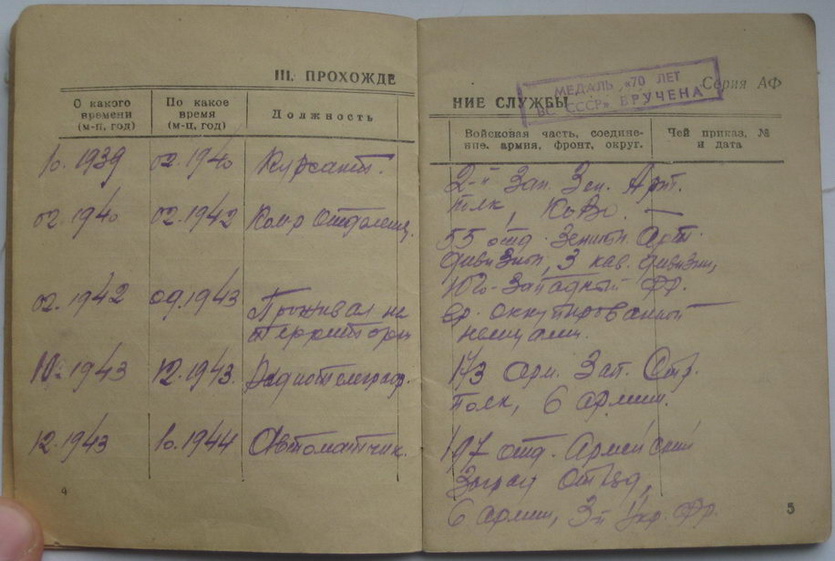 III. ПРОХОЖДЕ
С какого времени (м-ц, год)
По какое время (м-ц, год)
Должность
10.1939 02.1940 Курсант.
02.1940 02.1942 Ком-р отделен.
02.1942 09.1943 Проживал на
территории
10.1943 12.1943. Радиотелеграф.
12.1943 10.1944 Автоматчик.
4
Серия АФ
МЕДАЛЬ „«70 ЛЕТ
ВС СССР» ВРУЧЕНА
НИЕ СЛУЖБЫ
Войсковая часть, соедине-
ние, армия, фронт, округ.
Чей приказ, №
и дата
2-й Зап. Зен. Арт.
полк, КОВО. —
55 отд. Зенитн. Арт.
дивизион, 3 кав. дивизии,
Юго-Западный Фр.
вр. оккупированной
немцами.
173 арм. Зап. Стр.
полк, 6 армии.
197 отд. Армейский
отряд,
6 армии, 3-й Укр. Фр.
5